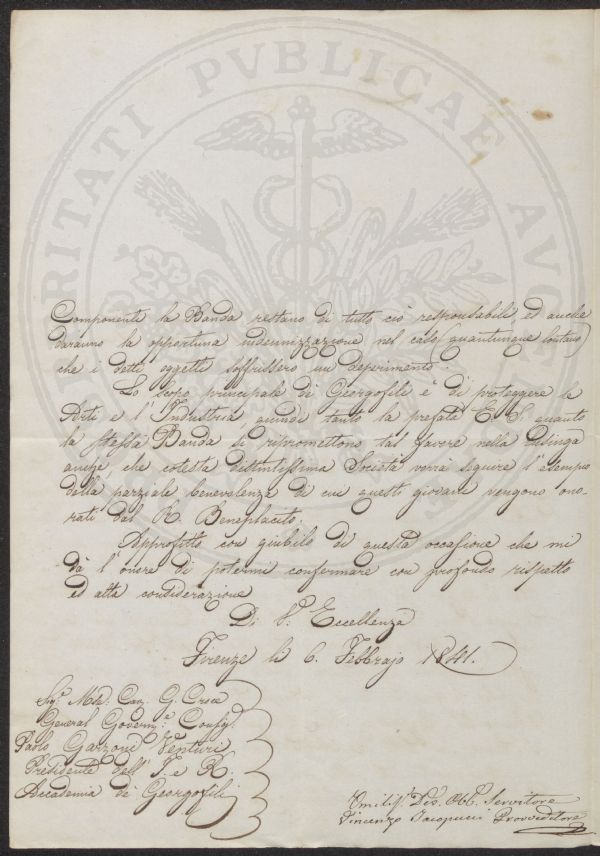 PVBLICAE
Componenti la Banda restano di tutto ciò responsabili, ed anche
daranno la opportuna indennizzazione nel caso (quantunque lontano)
che i detti oggetti soffrissero un deperimento.
Lo scopo principale di Georgofili è di proteggere le
Arti e l'Industria, quindi tanto la prefata E. S. quanto
la stessa Banda si ripromettono tal favore nella lusinga
anche, che cotesta distintissima Società vorrà seguire l'esempio
della parziale benevolenza di cui questi giovani vengono ono-
rati dal R. Beneplacito.
Approfitto con giubilo di questa occasione che mi
dà l'onore di potermi confermare con profondo rispetto
ed alta considerazione
Di V.ª Eccellenza
Firenze li 6. Febbrajo 1841.
Sigr. Cav. G. Croce
General Govern.e
Paolo Garzoni Venturi
Presidente dell'I. e R.
Accademia dei Georgofili
Umiliss.º Dev. Obb. Servitore
Vincenzo Jacopucci Provveditore